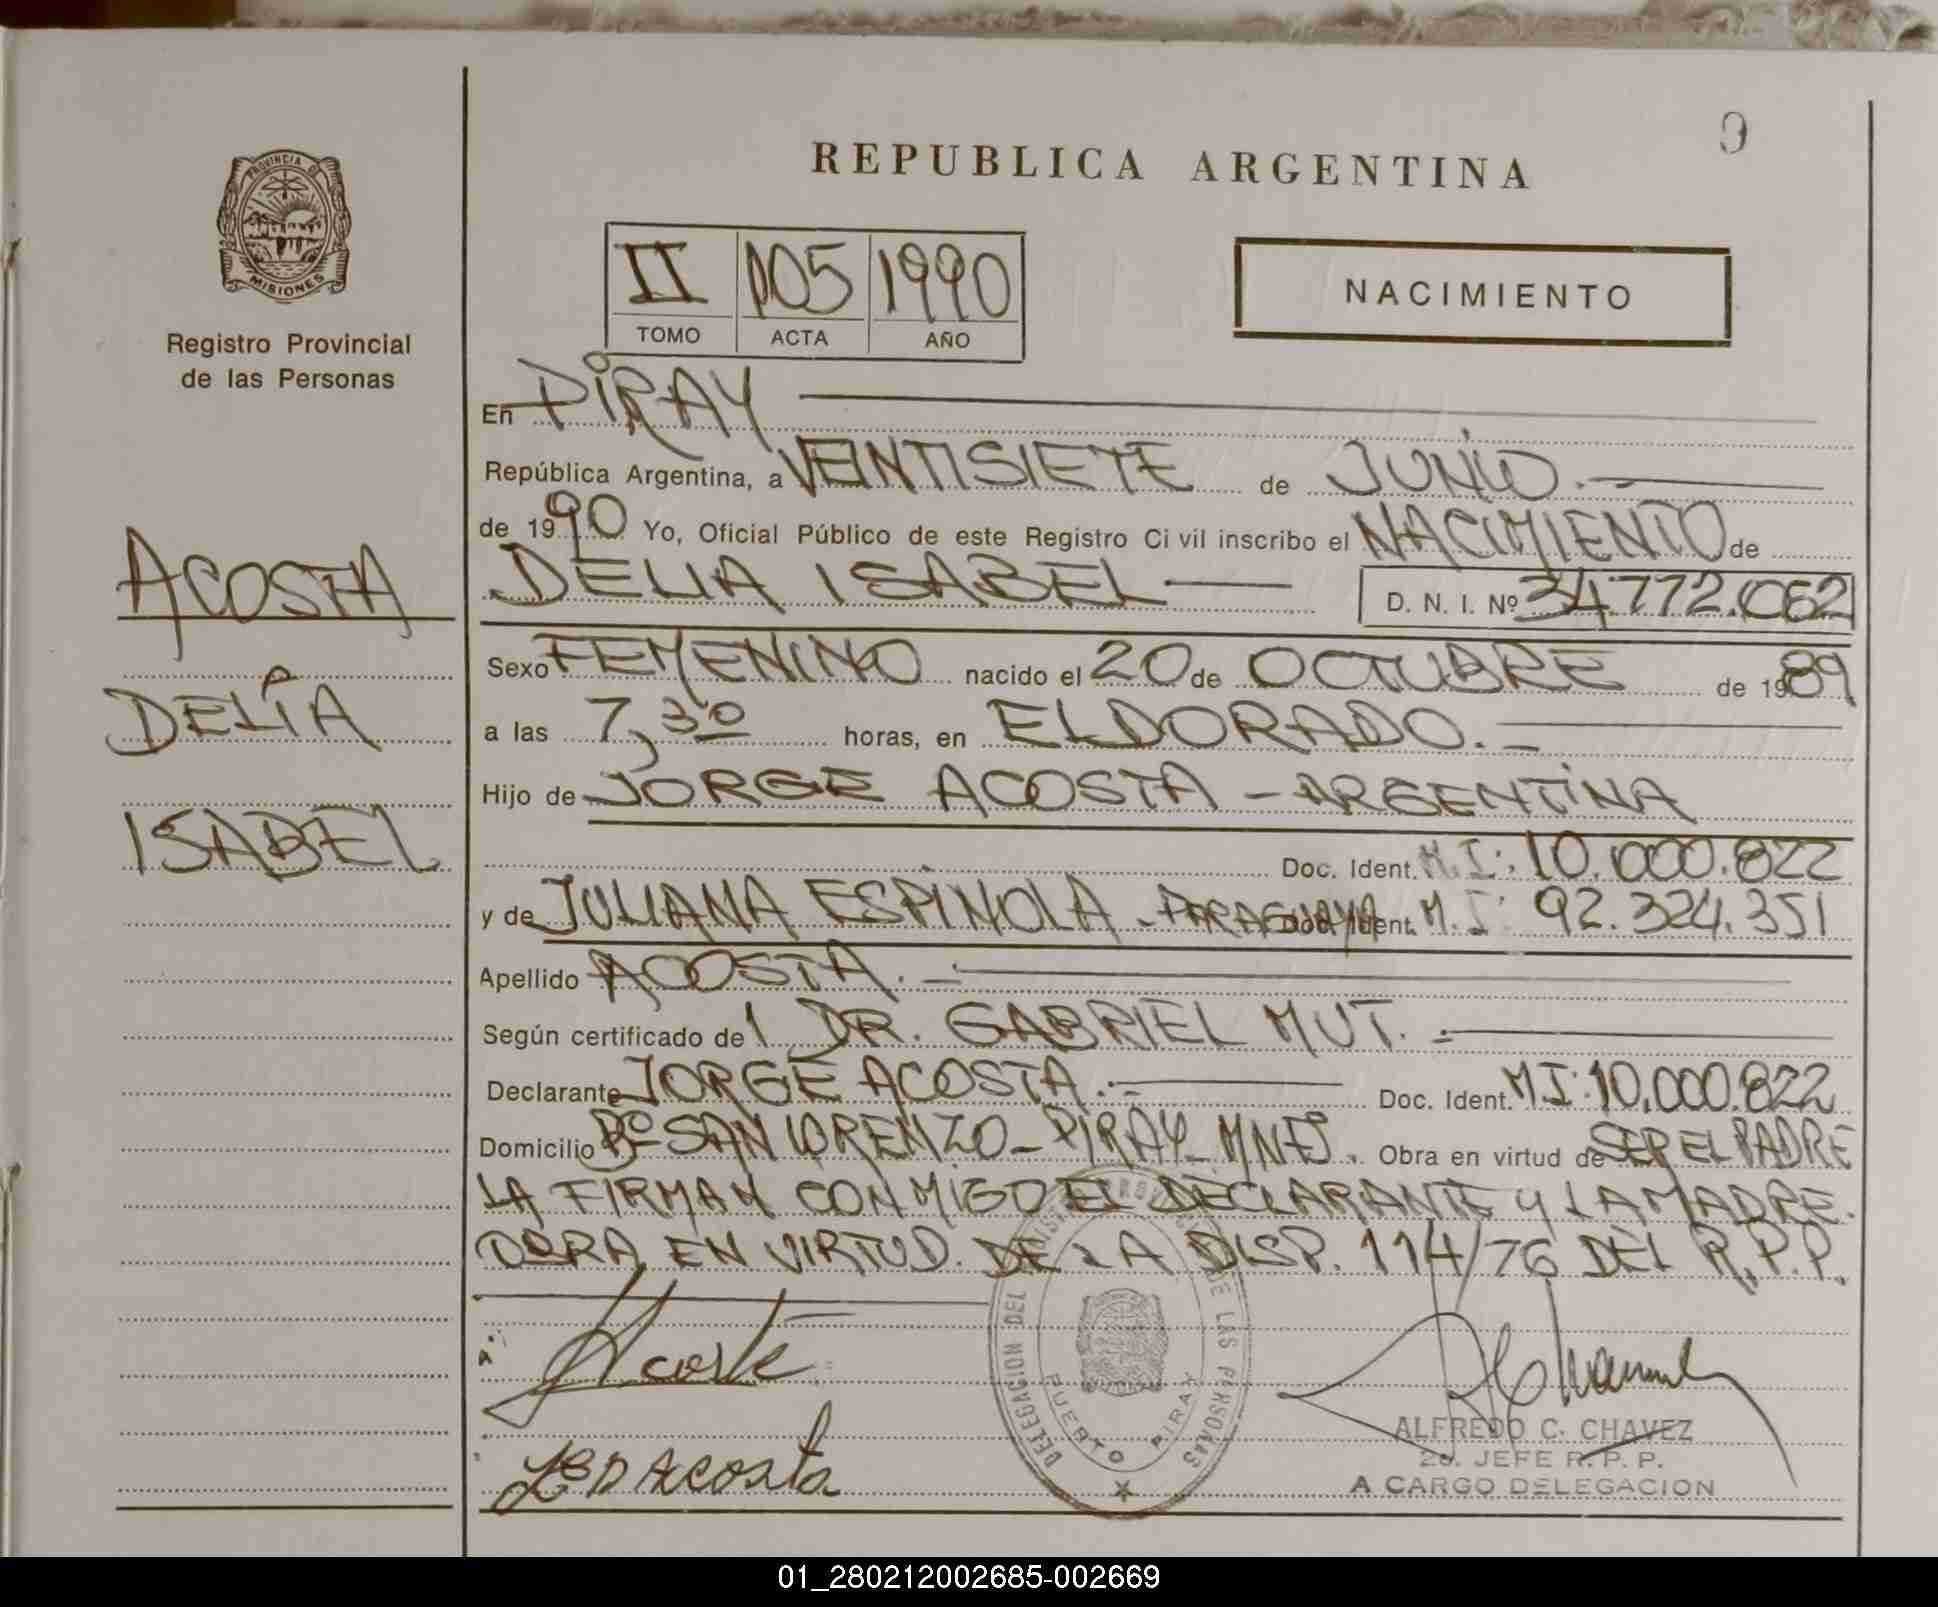 PROVINCIA DE MISIONES
Registro Provincial
de las Personas
ACOSTA
DELIA
ISABEL
9
REPUBLICA ARGENTINA
II 105 1990
TOMO ACTA AÑO
NACIMIENTO
En PIRAY
República Argentina, a VEINTISIETE de JUNIO.-
de 1990 Yo, Oficial Público de este Registro Civil inscribo el NACIMIENTO de
DELIA ISABEL D. N. I. Nº 34.772.062
Sexo FEMENINO nacido el 20 de OCTUBRE de 1989
a las 7,30 horas, en ELDORADO.-
Hijo de JORGE ACOSTA - ARGENTINA
Doc. Ident. M.I: 10.000.822
y de JULIANA ESPINOLA - PARAGUAYA Doc. Ident. M.I: 92.324.351
Apellido ACOSTA.-
Según certificado de 1 DR. GABRIEL MUT.-
Declarante JORGE ACOSTA.- Doc. Ident. M.I: 10.000.822
Domicilio Bº SAN LORENZO - PIRAY - MNES. Obra en virtud de SER EL PADRE
LA FIRMAN CONMIGO EL DECLARANTE Y LA MADRE.
OBRA EN VIRTUD DE LA DISP. 114/76 DEL R.P.P.
Acosta
DELEGACION DEL REGISTRO PROVINCIAL DE LAS PERSONAS
PUERTO PIRAY
Acosta
ALFREDO C. CHAVEZ
2º. JEFE R. P. P.
A CARGO DELEGACION
01_280212002685-002669